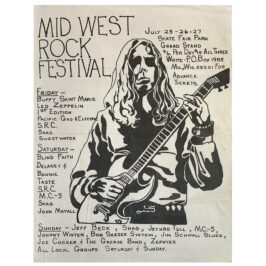 MID WEST
ROCK
FESTIVAL
JULY 25-26-27
STATE FAIR PARK
GRAND STAND
$6 PER DAY $15 ALL THREE
WRITE-P.O. BOX
MIL, WIS. 53201 FOR
ADVANCE
TICKETS
FRIDAY -
BUFFY SAINT MARIE
LED ZEPPELIN
1ST EDITION
PACIFIC GAS & ELECTRIC
S.R.C.
SHAG
SWEETWATER
SATURDAY -
BLIND FAITH
DELANEY &
BONNIE
TASTE
S.R.C.
MC-5
SHAG
JOHN MAYALL
SUNDAY - JEFF BECK, SHAG, JETHRO TULL, M.C-5,
JOHNNY WINTER, BOB SEEGER SYSTEM, JIM SCHWALL BLUES,
JOE COCKER & THE GREASE BAND, ZEPHYER
ALL LOCAL GROUPS SATURDAY & SUNDAY.